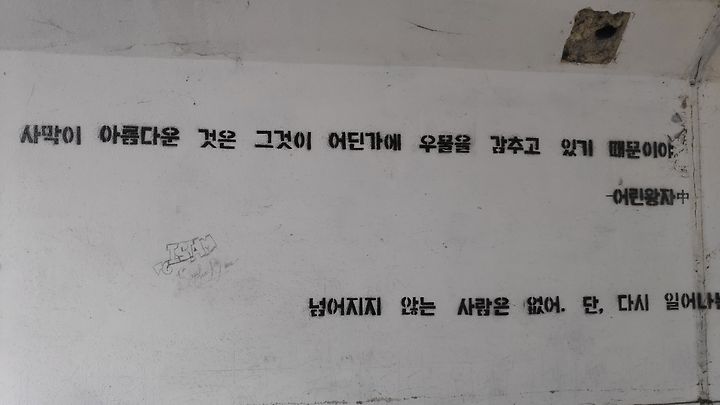 사막이 아름다운 것은 그것이 어딘가에 우물을 감추고 있기 때문이야
-어린왕자中
넘어지지 않는 사람은 없어. 단, 다시 일어나